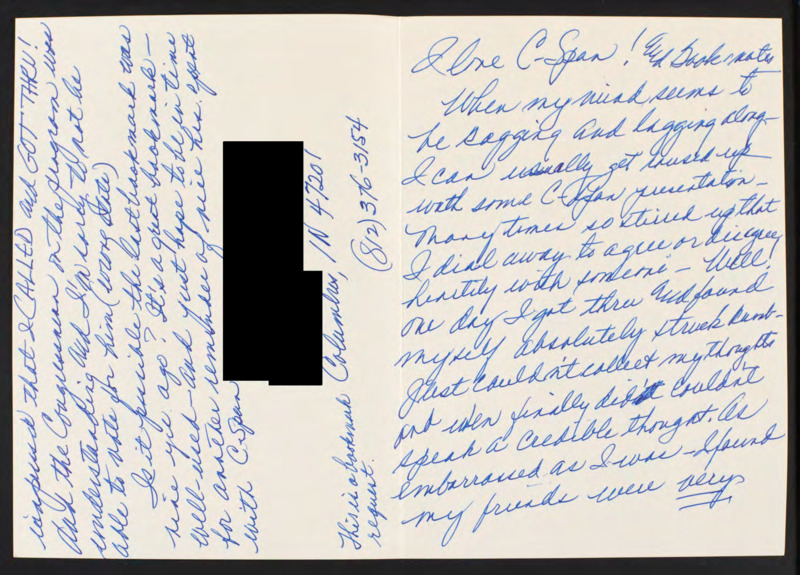 I love C-Span! And Booknotes
When my mind seems to
be sagging and lagging along -
I can usually get roused up
with some C-Span presentation -
Many times so stirred up that
I dial away to agree or disagree
heartily with someone - Well!
one day I got thru and found
myself absolutely struck dumb -
Just couldn't collect my thoughts
and when finally did couldn't
speak a credible thought. As
embarrassed as I was - I found
my friends were very
impressed that I CALLED and GOT THRU!
And the Congressman on the program was
understanding and I'm sorry to not be
able to vote for him (wrong state)
Is it possible the last bookmark was
nine yrs. ago? It's a great bookmark -
well-used - and just hope to be in time
for another reminder of nice his. spent
with C-Span
Columbus, IN 47201
(812) 376-3154
This is a bookmark
request.